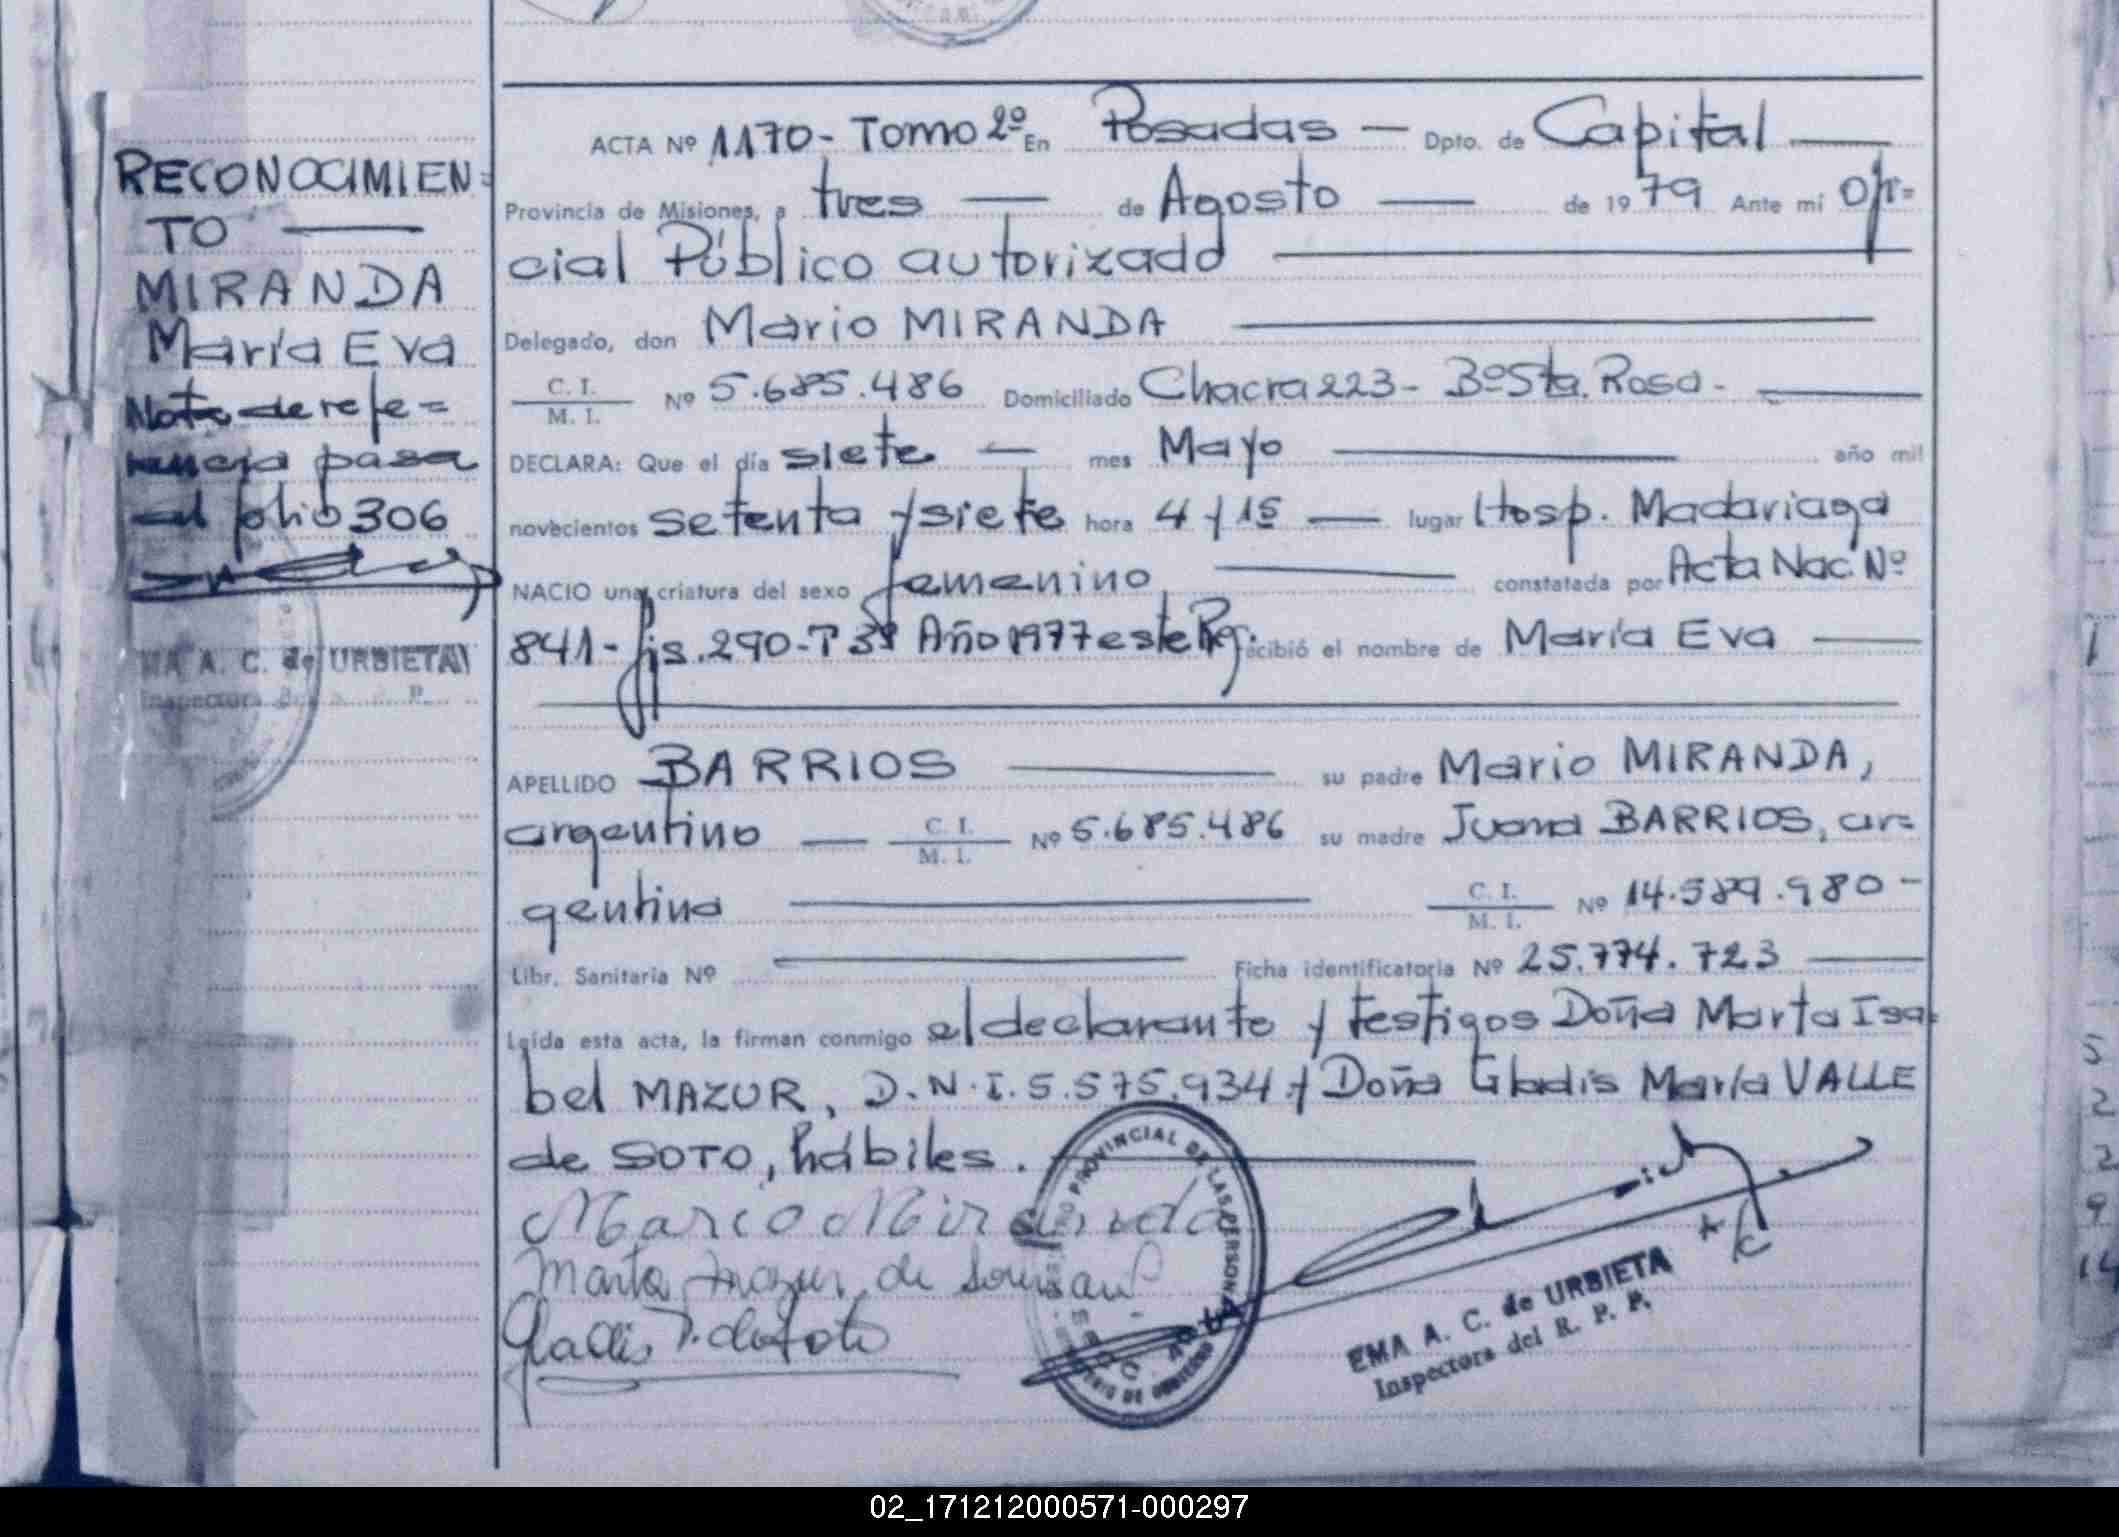 RECONOCIMIEN=
TO
MIRANDA
María Eva
Nota de refe=
rencia pasa
al folio 306
MA A. C. de URBIETA
Inspectora
ACTA Nº 1170- Tomo 2º En Posadas — Dpto. de Capital
Provincia de Misiones, a tres — de Agosto — de 1979 Ante mí Ofi=
cial Público autorizado
Delegado, don Mario MIRANDA
C. I.
M. I.
Nº 5.685.486 Domiciliado Chacra 223- BºSta. Rosa-
DECLARA: Que el día siete — mes Mayo — año mil
novecientos setenta y siete hora 4 y 15 — lugar Hosp. Madariaga
NACIO una criatura del sexo femenino — constatada por Acta Nac. Nº
841- fjs. 290-T 3º Año 1977 este Reg. recibió el nombre de María Eva
APELLIDO BARRIOS — su padre Mario MIRANDA,
argentino — C. I. M. I. Nº 5.685.486 su madre Juana BARRIOS, ar=
gentina — C. I. M. I. Nº 14.589.980-
Libr. Sanitaria Nº — Ficha identificatoria Nº 25.774.723
Leída esta acta, la firman conmigo el declarante y testigos Doña Marta Isa=
bel MAZUR, D.N.I. 5.575.934 y Doña Gladis María VALLE
de SOTO, hábiles.
Mario Miranda
Marta Mazur de
Gladis V. de Soto
REGISTRO PROVINCIAL DE LAS PERSONAS
EMA A. C. de URBIETA
Inspectora del R. P. P.
02_171212000571-000297